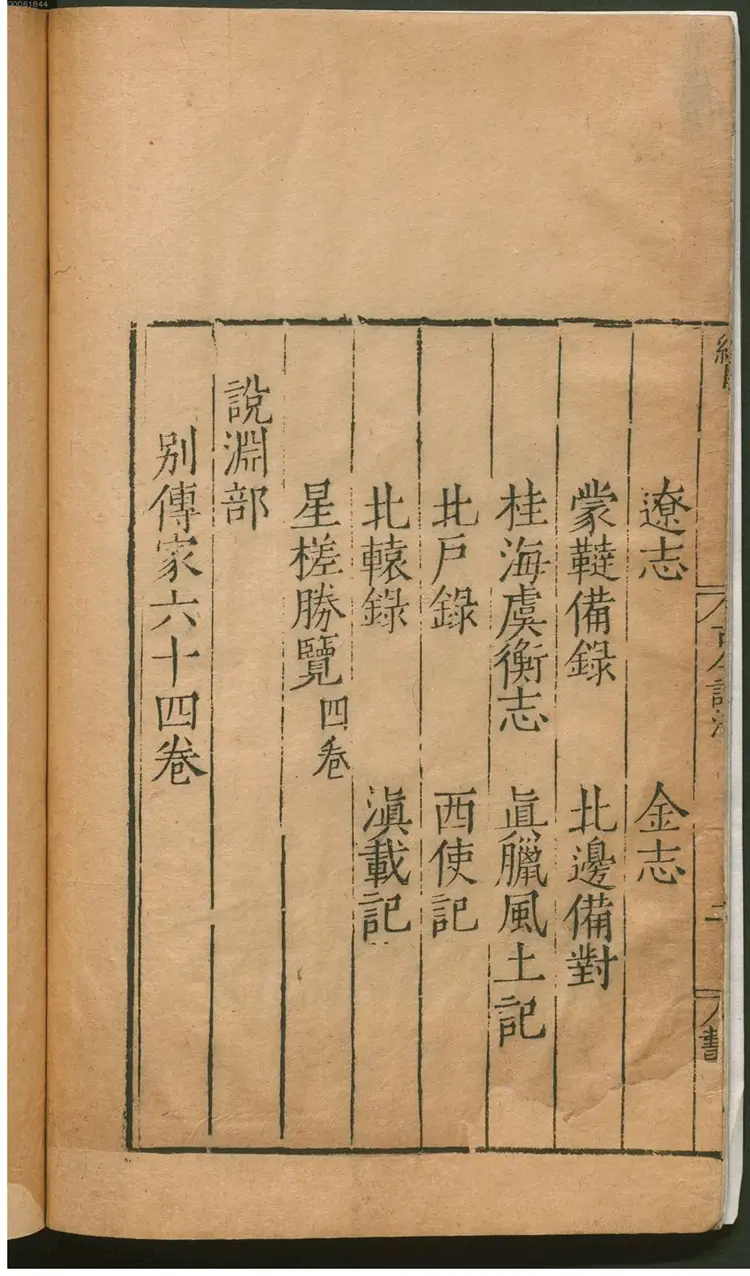 00061844
古今說海
二
書
遼志 金志
蒙韃備錄 北邊備對
桂海虞衡志 眞臘風土記
北戶錄 西使記
北轅錄 滇載記
星槎勝覽四卷
說淵部
別傳家六十四卷